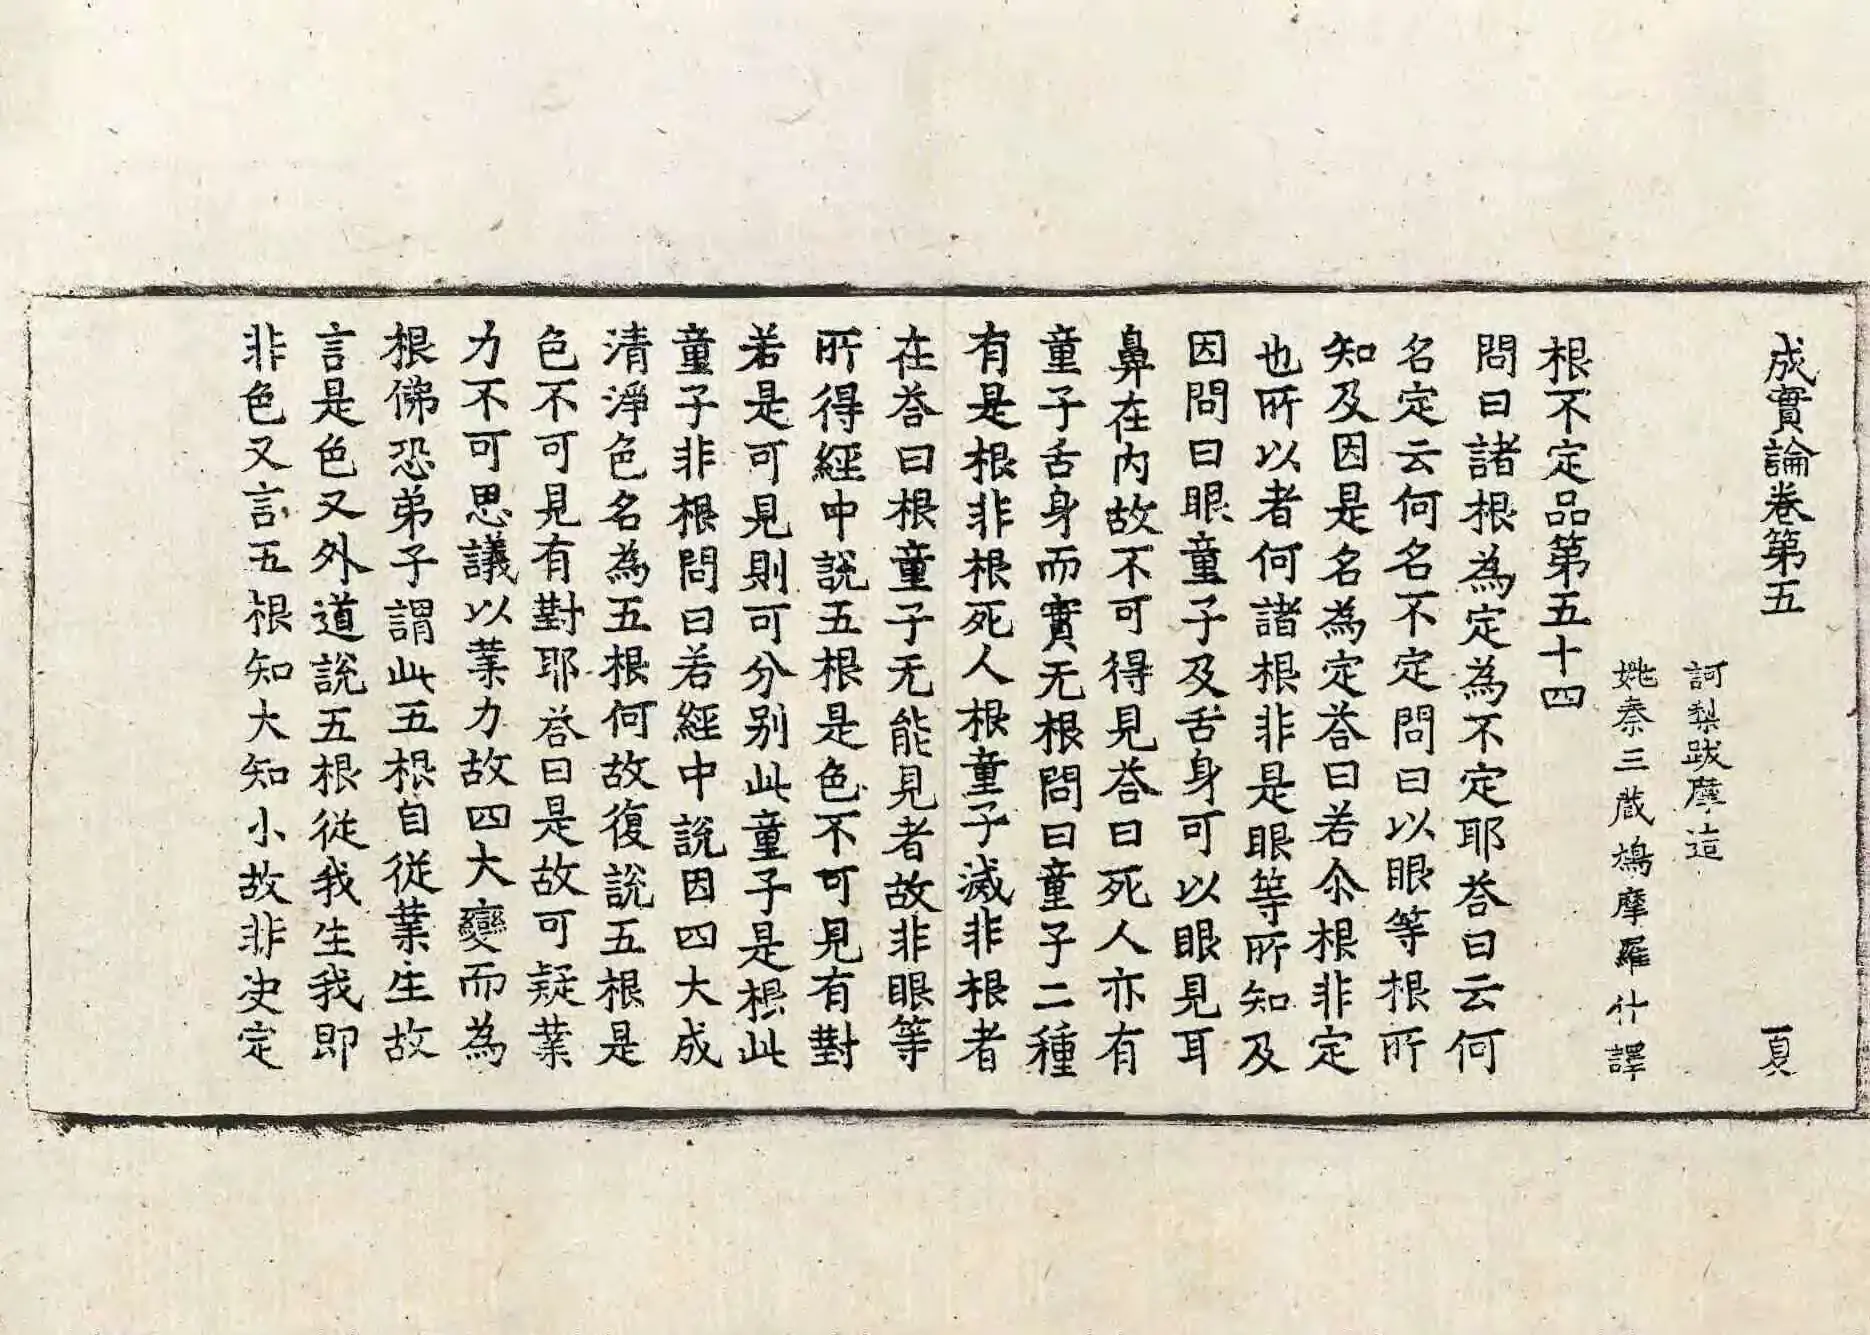 成實論卷第五 頁
訶梨跋摩造
姚秦三蔵鳩摩羅什譯
根不定品第五十四
問曰諸根為定為不定耶荅曰云何
名定云何名不定問曰以眼等根所
知及因是名為定荅曰若尒根非定
也所以者何諸根非是眼等所知及
因問曰眼童子及舌身可以眼見耳
鼻在内故不可得見荅曰死人亦有
童子舌身而實无根問曰童子二種
有是根非根死人根童子滅非根者
在荅曰根童子无能見者故非眼等
所得經中說五根是色不可見有對
若是可見則可分別此童子是根此
童子非根問曰若經中說因四大成
清淨色名為五根何故復說五根是
色不可見有對耶荅曰是故可疑業
力不可思議以業力故四大變而為
根佛恐弟子謂此五根自從業生故
言是色又外道說五根從我生我即
非色又言五根知大知小故非決定